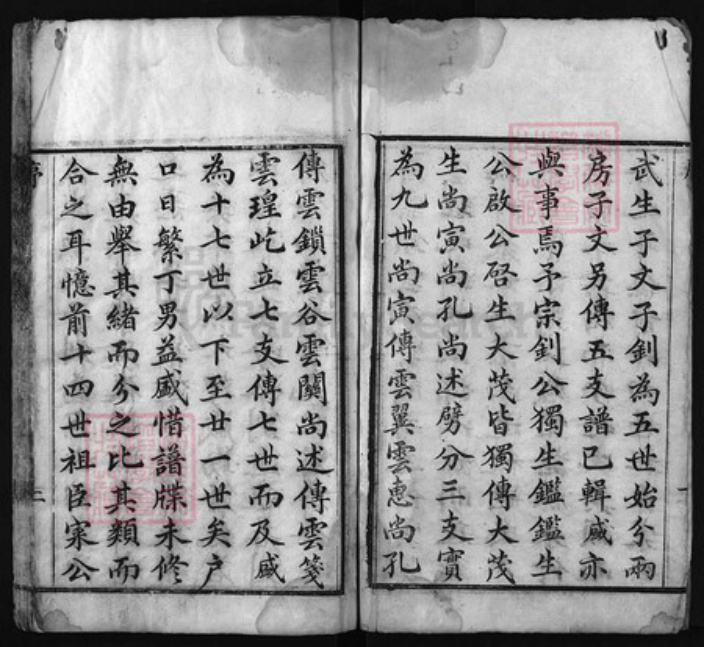 武生子文子釗為五世始兮兩
房子文另傳五支譜已輯威亦
與事焉予宗釗公獨生鑑鑑生
公啟公啓生大茂皆獨傳大茂
生尚寅尚孔尚述劈分三支實
為九世尚寅傳雲翼雲惠尚孔
傳雲鎖雲谷雲關尚述傳雲箋
雲瑝屹立七支傳七世而及威
為十七世以下至廿一世矣户
口日繁丁男益盛惜譜牒未修
無由舉其緒而分之比其類而
合之耳憶前十四世祖臣寀公
序
三